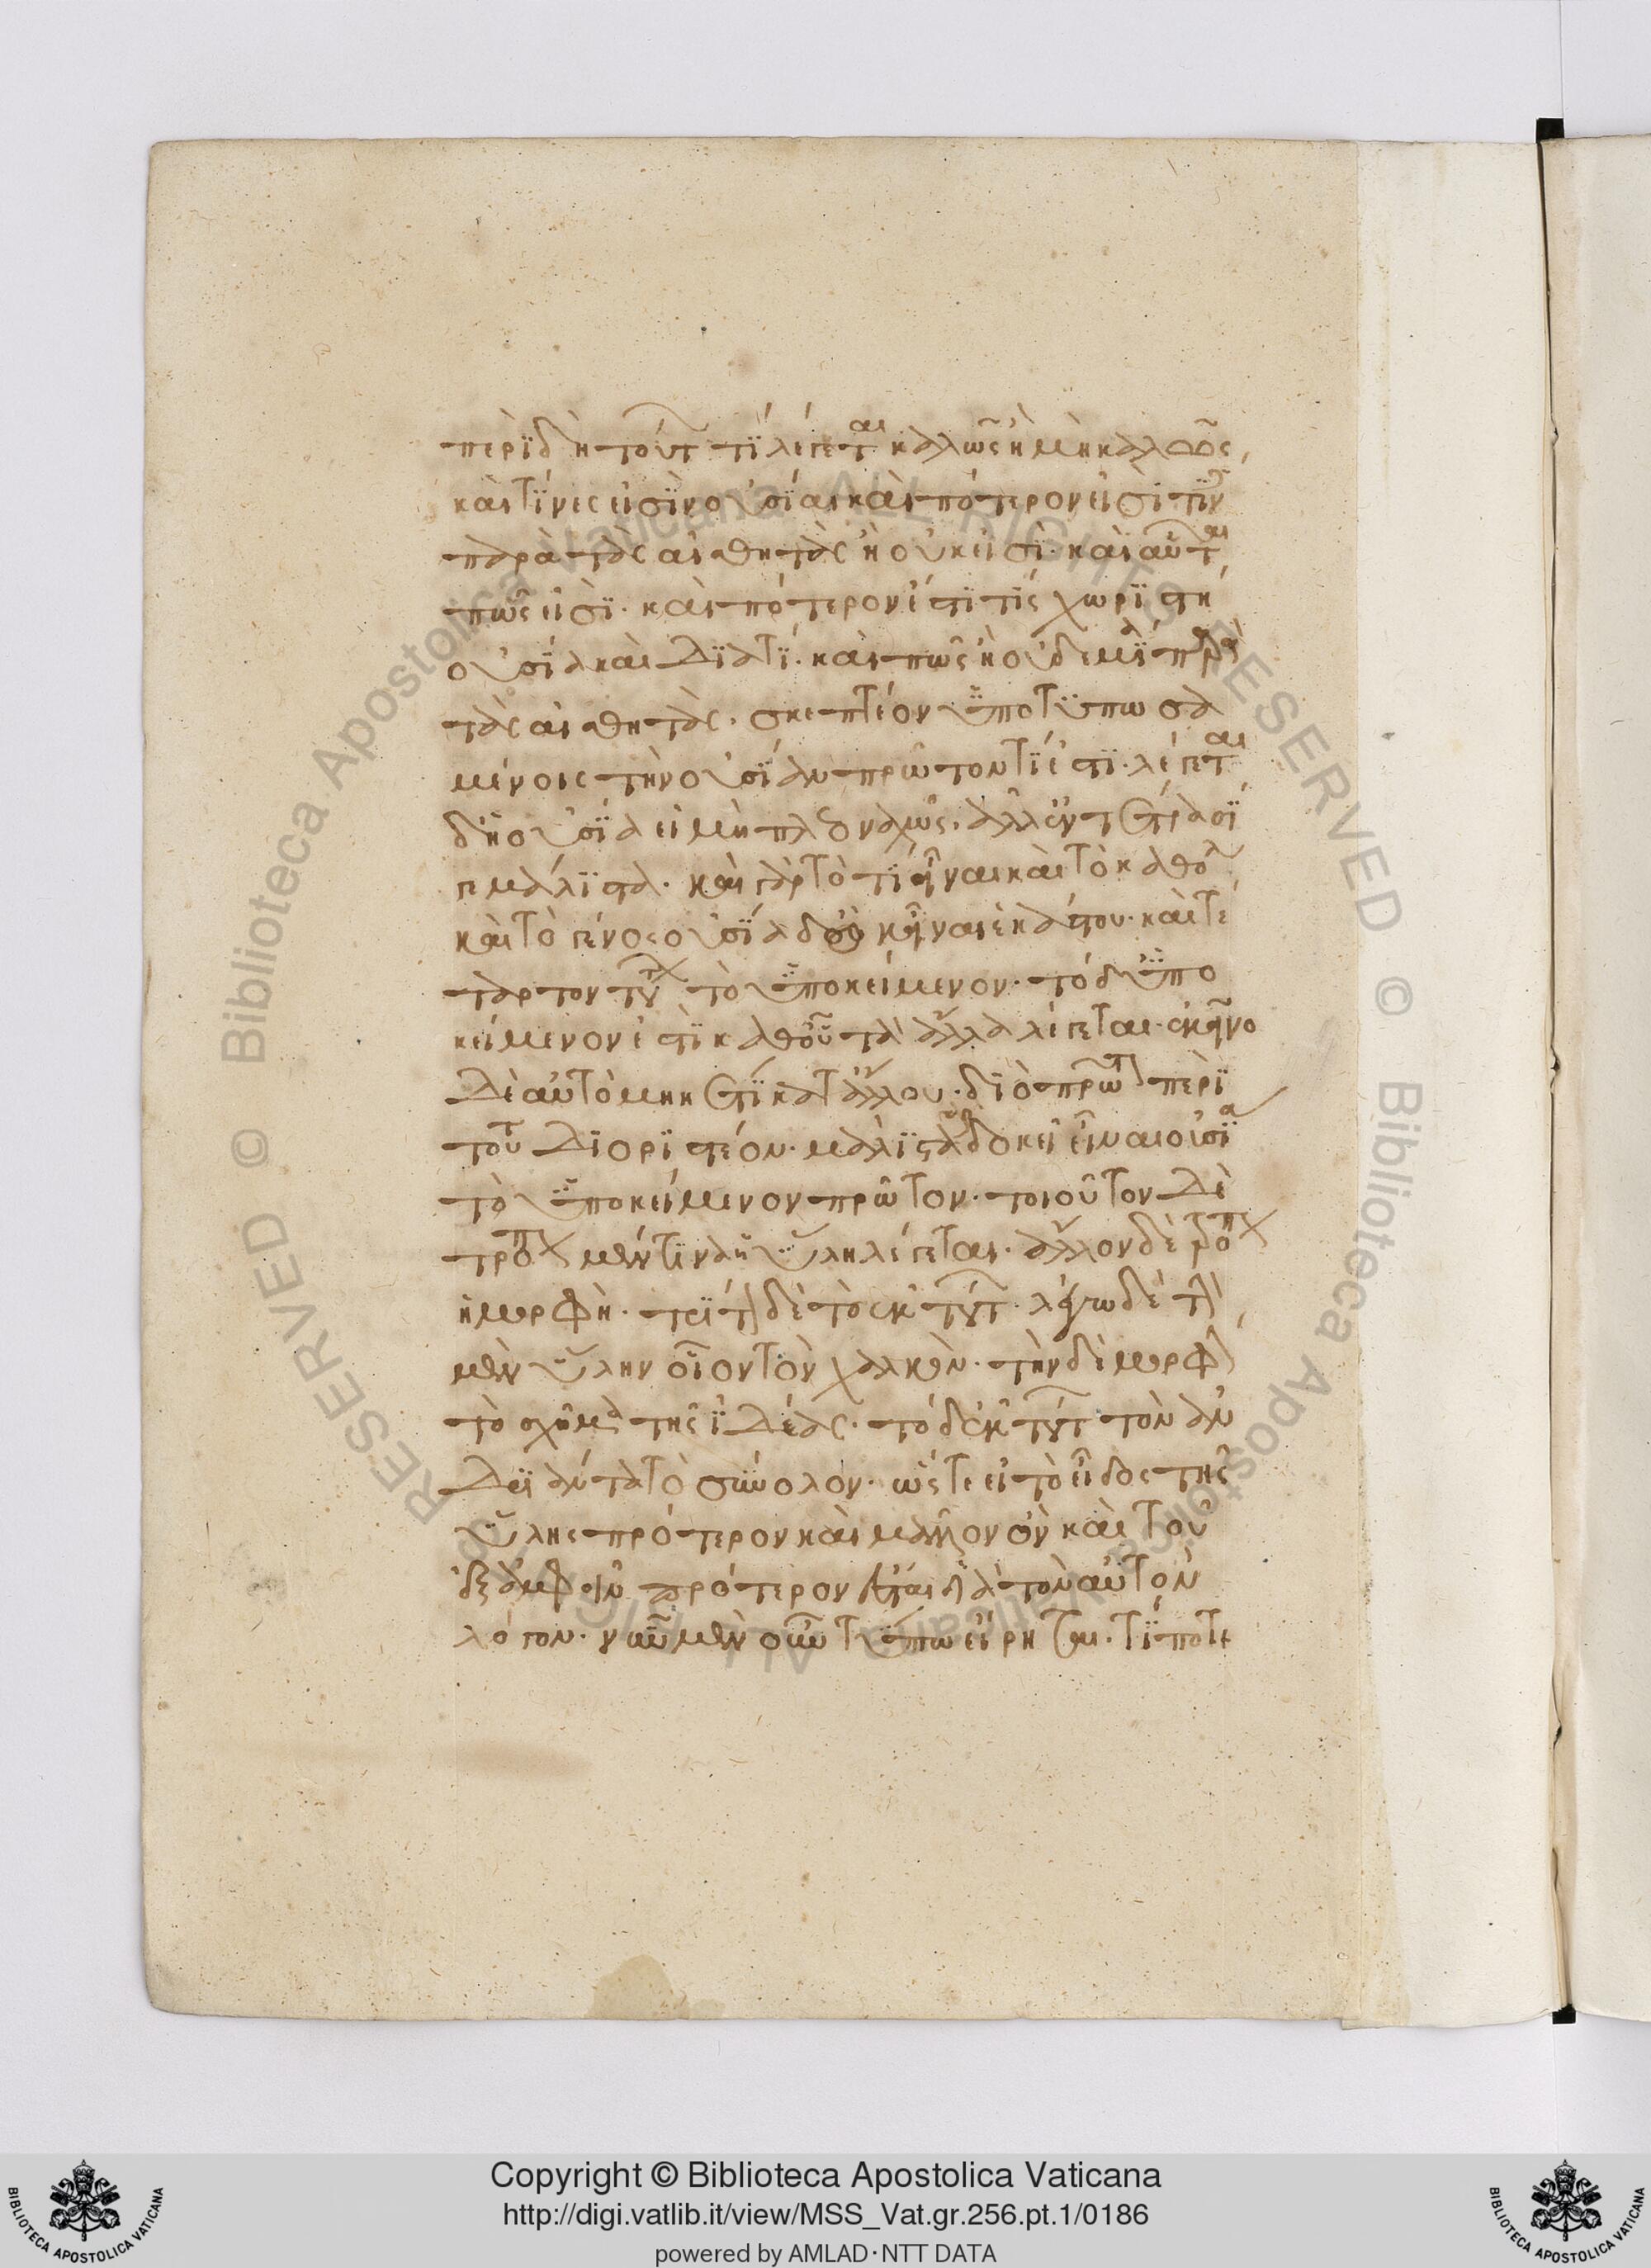 περὶ δὴ τούτ τί λέγεται καλῶς ἢ μὴ καλῶς,
καὶ τίνες εἰσὶν οὐσίαι καὶ πότερον εἰσί τιν
παρὰ τὰς αἰσθητὰς ἢ οὐκ εἰσί· καὶ αὗται
πῶς εἰσί· καὶ πότερον ἔστι τίς χωριστὴ
οὐσία καὶ διατί· καὶ πῶς ἢ οὐδεμία παρὰ
τὰς αἰσθητὰς· σκεπτέον ὑποτυπωσα
μένοις τὴν οὐσίαν πρῶτον τί ἐστι· λέγεται
δ ἡ οὐσία εἰ μὴ πλεοναχῶς· ἀλλ ἐν τέτρασί
γε μάλιστα· καὶ γὰρ τὸ τί ἦν εἶναι καὶ τὸ καθόλου
καὶ τὸ γένος οὐσία δοκεῖ εἶναι ἑκάστου· καὶ τέ
ταρτον τούτων τὸ ὑποκείμενον· τὸ δ ὑπο
κείμενόν ἐστι καθ οὗ τὰ ἄλλα λέγεται· ἐκεῖνο
δὲ αὐτὸ μηκέτι κατ ἄλλου· διὸ πρῶτον περὶ
τούτου διοριστέον· μάλιστα γὰρ δοκεῖ εἶναι οὐσία
τὸ ὑποκείμενον πρῶτον· τοιοῦτον δὲ
τρόπον μέν τινα ἡ ὕλη λέγεται· ἄλλον δὲ τρόπον
ἡ μορφὴ· τρίτον δὲ τὸ ἐκ τούτ· λέγω δὲ τὴν
μὲν ὕλην οἷον τὸν χαλκὸν· τὴν δὲ μορφὴν
τὸ σχῆμα τῆς ἰδέας· τὸ δ ἐκ τούτ τὸν ἀν
δριάντα τὸ σύνολον· ὥστε εἰ τὸ εἶδος τῆς
ὕλης πρότερον καὶ μᾶλλον ὂν καὶ τοῦ
ἐξ ἀμφοῖν πρότερον ἔσται διὰ τὸν αὐτὸν
λόγον· νῦν μὲν οὖν τύπῳ εἴρηται· τί ποτε
Copyright © Biblioteca Apostolica Vaticana
http://digi.vatlib.it/view/MSS_Vat.gr.256.pt.1/0186
powered by AMLAD·NTT DATA